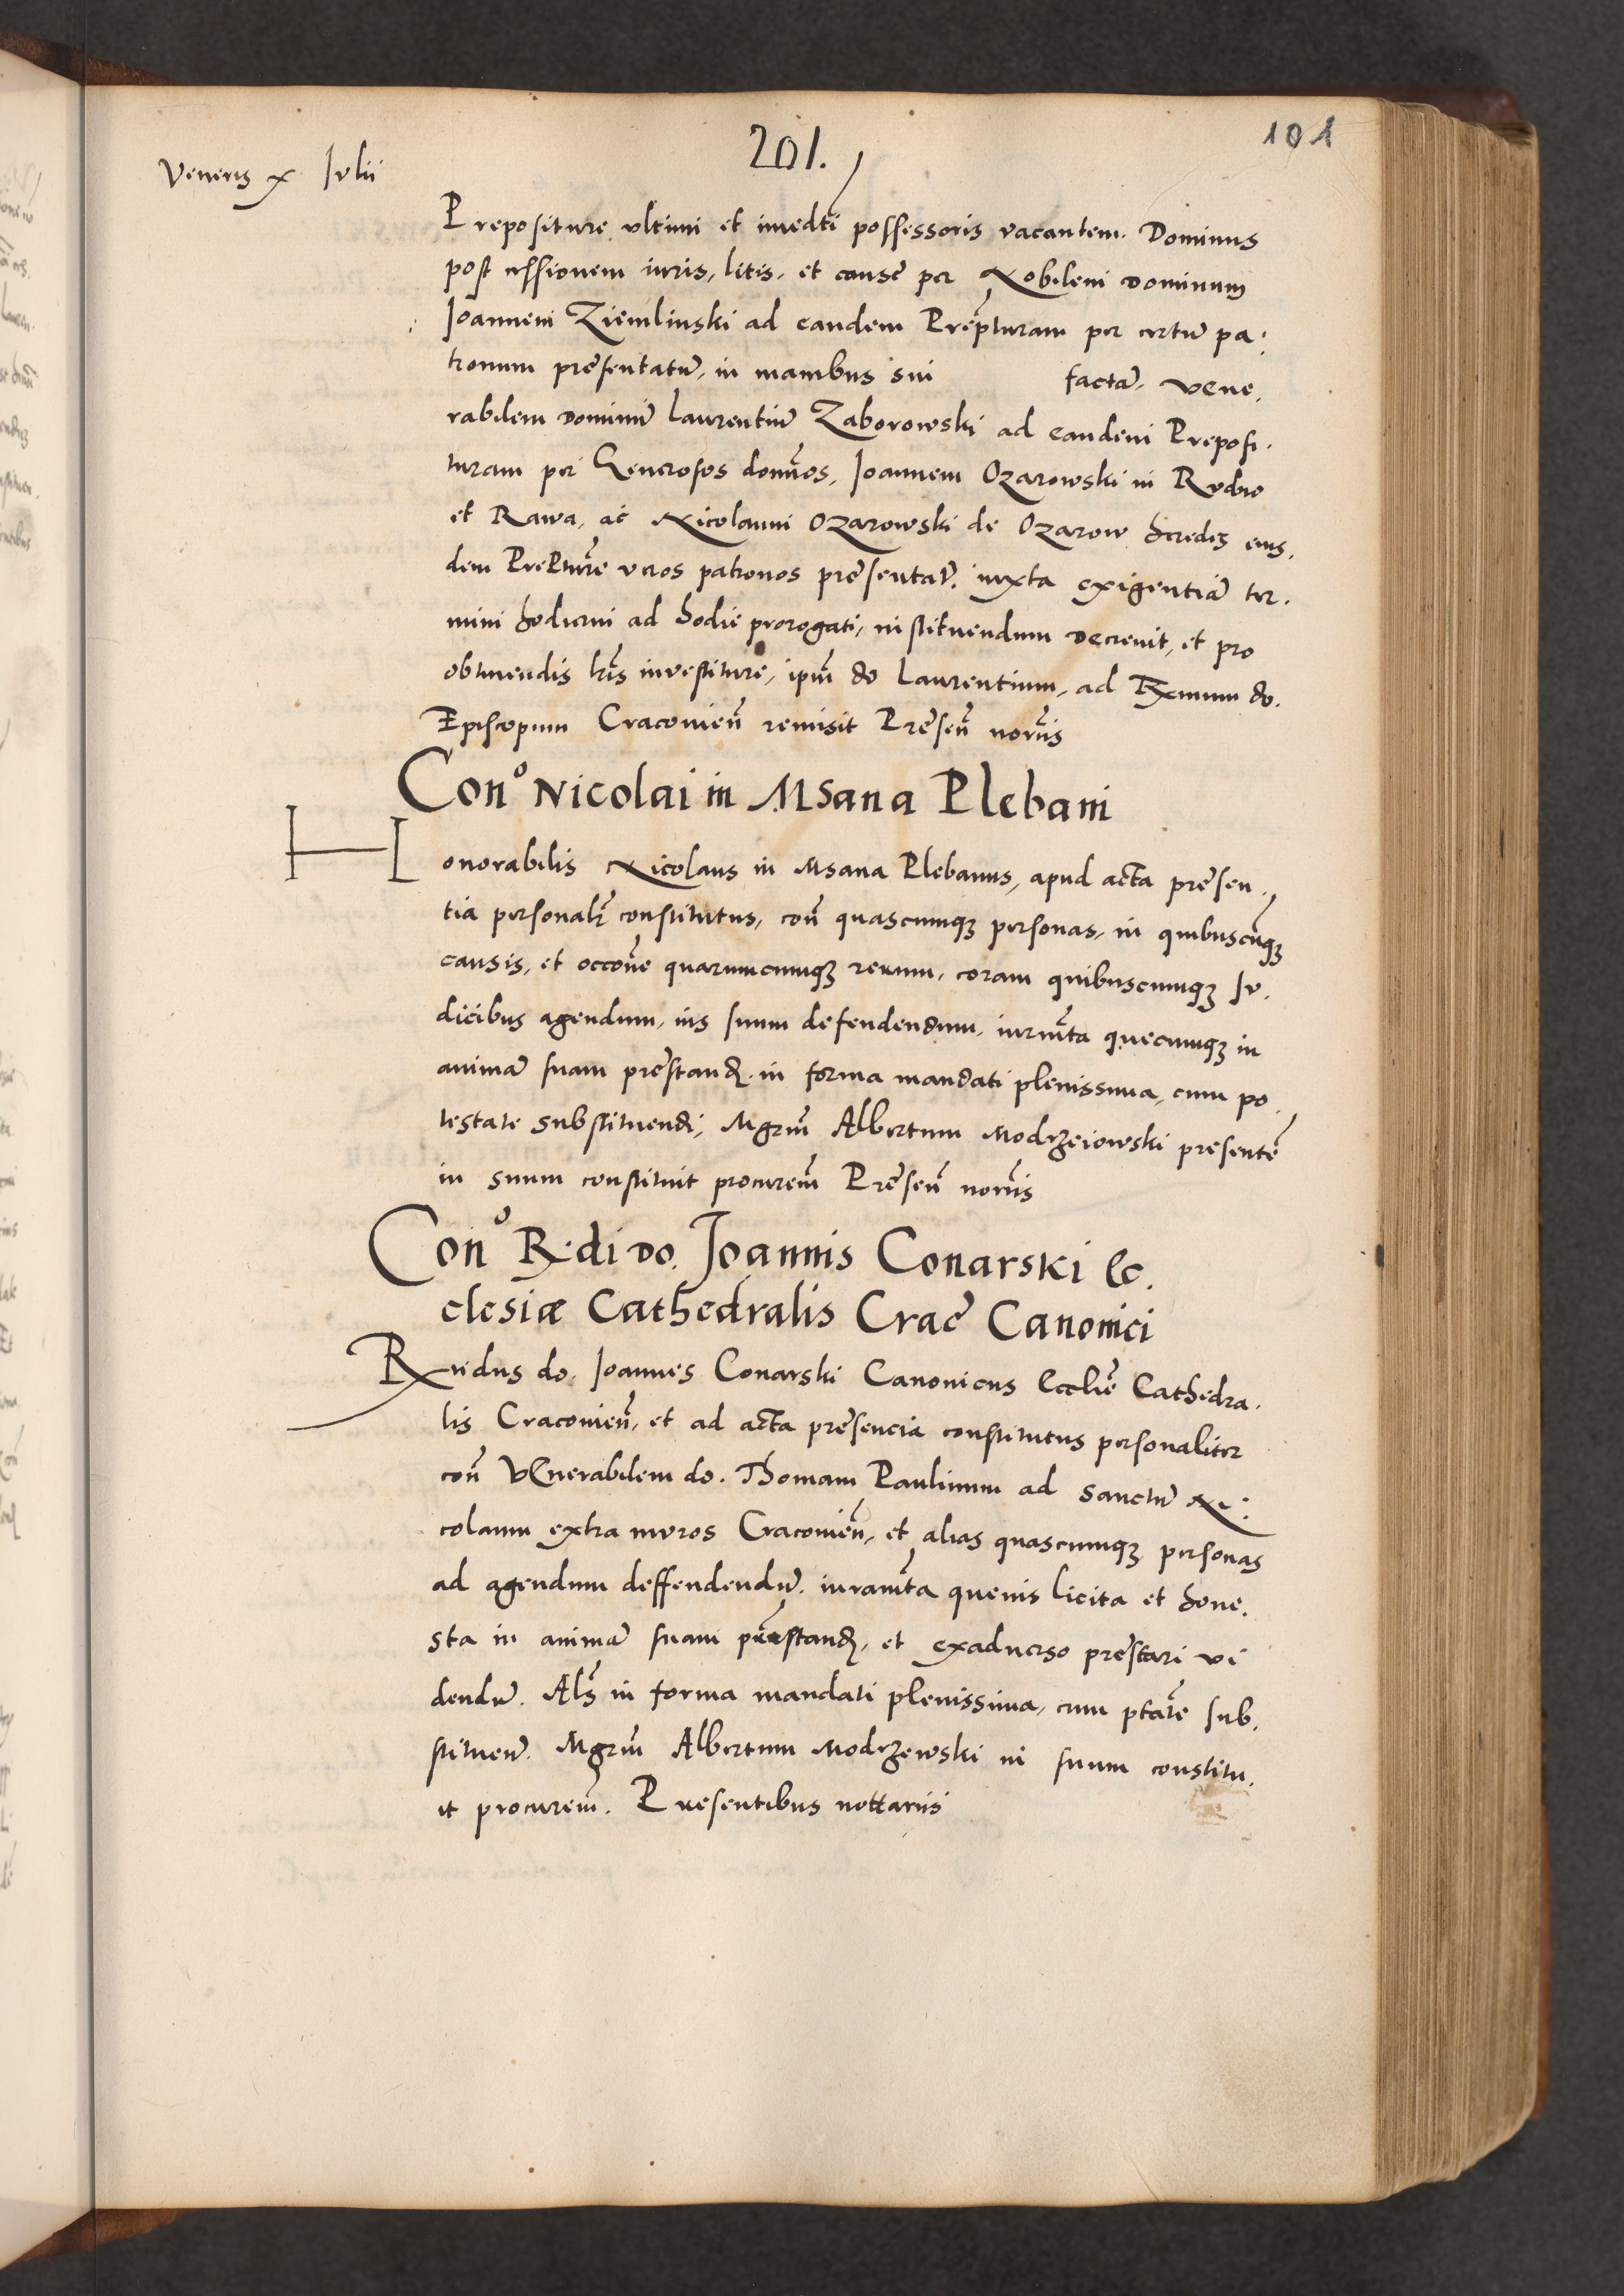 201.
101
Veneris x Iulii
Prepositure ultimi et imedti possessoris vacantem. Dominus
post cessionem iuris, litis, et cause per Nobilem dominum
Ioannem Ziemlinski ad eandem Prepturam per certum pa:
tronum presentatum, in manibus sui factam, vene.
rabilem dominum Laurentium Zaborowski ad eandem Preposi.
turam per Generosos domnos, Ioannem Ozarowski in Rudno
et Rawa, ac Nicolaum Ozarowski de Ozarow heredes eius.
dem Prepture veros patronos presentatum. iuxta exigentiam ter.
mini hodierni ad hodie prorogati, instituendum decrevit, et pro
obtinendis lris investiture, ipsum do Laurentium, ad Rxmum do.
Episcopum Cracovien remisit Presen norus
Cono Nicolai in Msana Plebani
Honorabilis Nicolaus in Msana Plebanus, apud acta presen.
tia personalr constitutus, con quascumq personas, in quibuscumq
causis, et occone quarumcumq rerum, coram quibuscumq Iu.
dicibus agendum, ius suum defendendum, iurmta quecumq in
animam suam prestand. in forma mandati plenissima, cum po.
testate substituendi, Mgrm Albertum Modrzeiowski presentem
in suum constituit procurem Presen norus
Cono R:di do. Joannis Conarski Ec.
clesiæ Cathedralis Crac Canonici
Rndus do. Ioannes Conarski Canonicus Ecclie Cathedra.
lis Cracovien, et ad acta presencia constitutus personaliter
con Venerabilem do. Thomam Paulinum ad sanctum Ni:
colaum extra muros Cracovien, et alias quascumq personas
ad agendum deffendendum. iuramta quevis licita et hone.
sta in animam suam prestand, et exadverso prestari vi
dendum. Als in forma mandati plenissima, cum ptate sub.
stituen. Mgrm Albertum Modrzewski in suum constitu.
it procurem. Presentibus nottariis